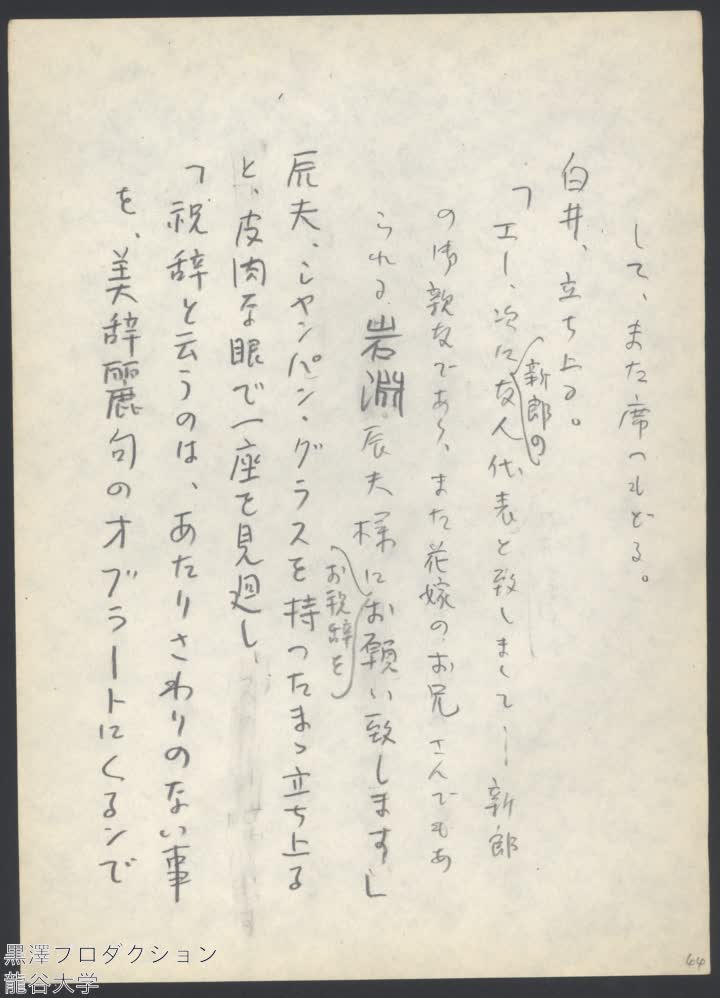 して、また席へもどる。
白井、立ち上る。
「エー、次に新郎の友人代表と致しまして――新郎
の御親友であり、また花嫁のお兄さんでもあ
られる岩淵辰夫様にお祝辞をお願い致します」
辰夫、シャンパン・グラスを持ったまゝ立ち上る
と、皮肉な眼で一座を見廻し、
「祝辞と云うのは、あたりさわりのない事
を、美辞麗句のオブラートにくるンで
44
黒澤プロダクション
龍谷大学